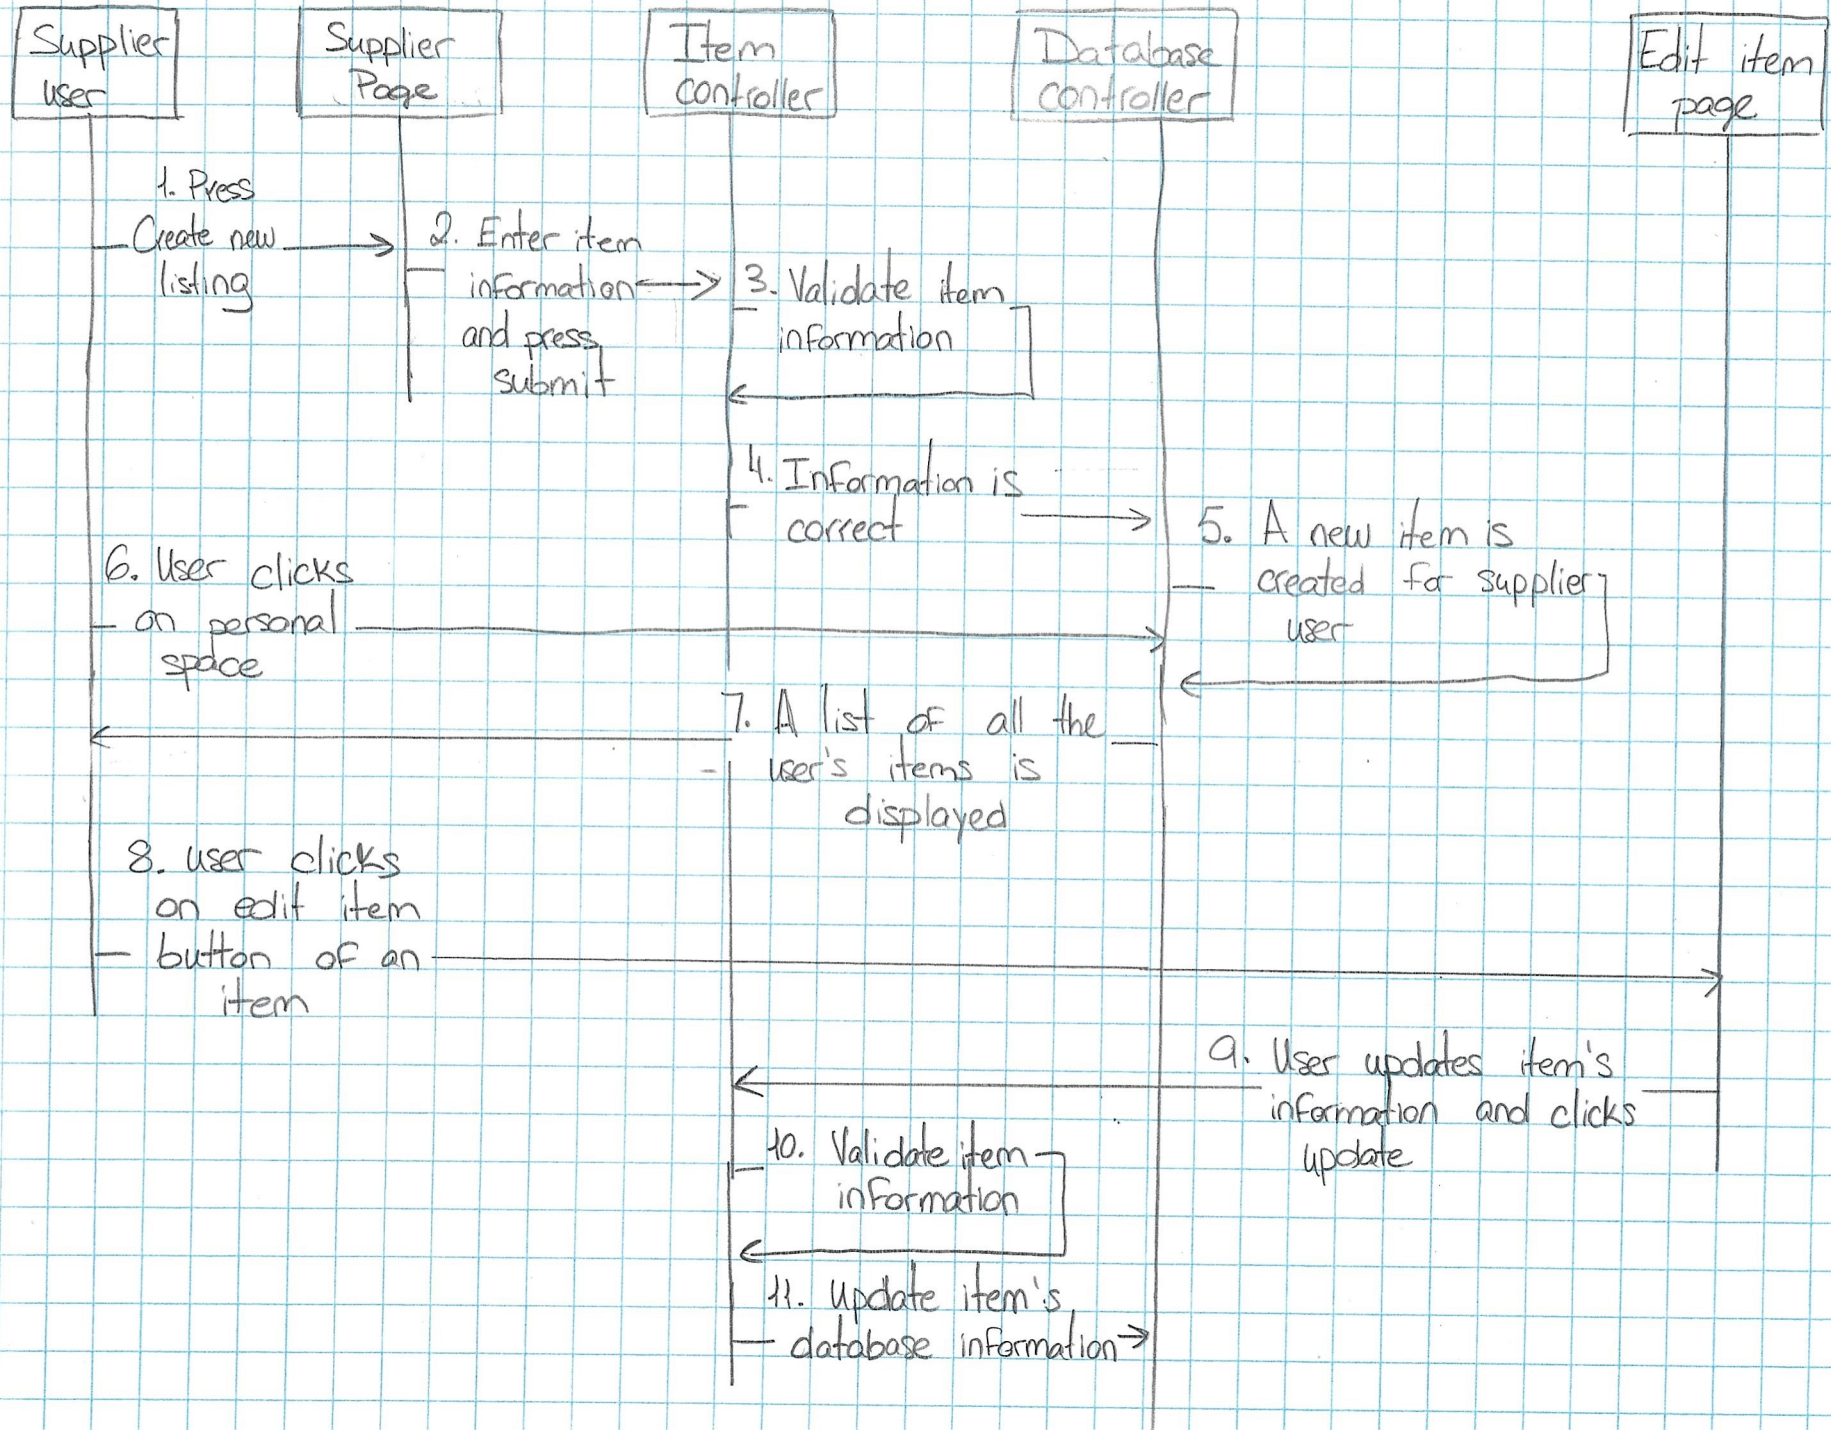 Supplier
user
Supplier
Page
Item
controller
Database
controller
Edit item
page
1. Press
Create new
listing
2. Enter item
information
and press
submit
3. Validate item
information
4. Information is
correct
5. A new item is
created for supplier
user
6. User clicks
on personal
space
7. A list of all the
user's items is
displayed
8. user clicks
on edit item
button of an
item
9. User updates item's
information and clicks
update
10. Validate item
information
11. update item's
database information